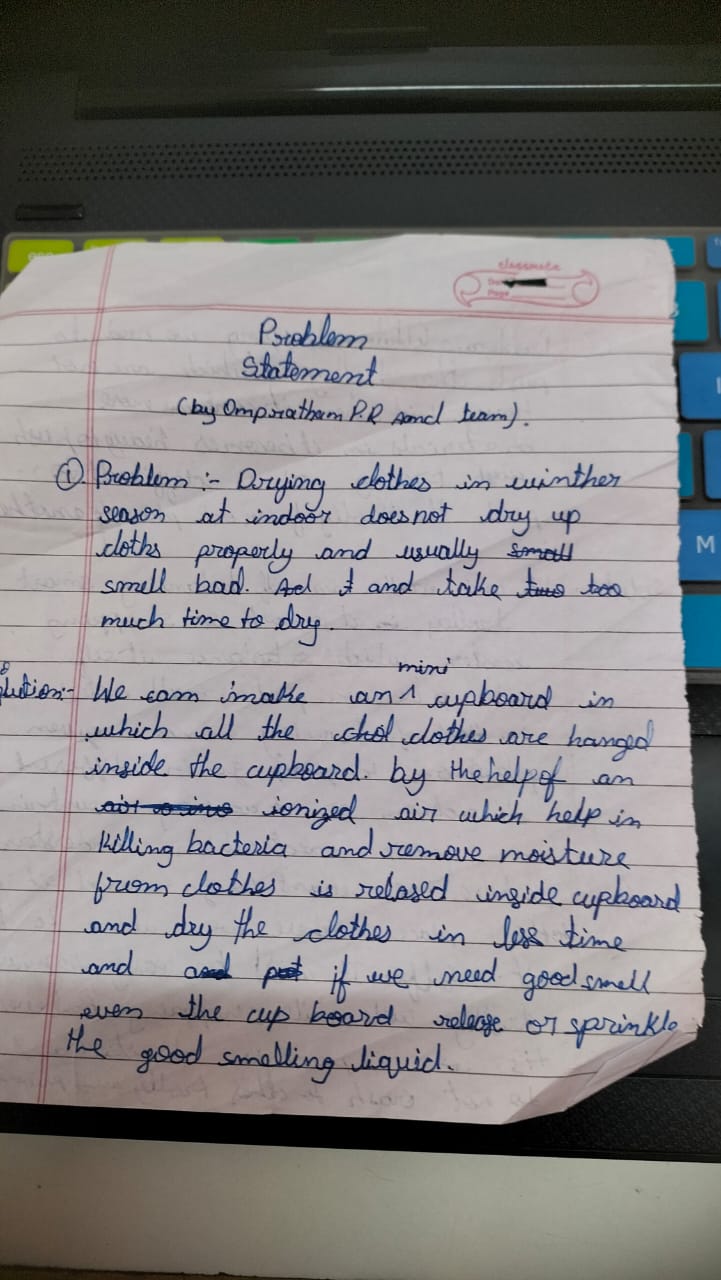 classmate
Page
Problem
Statement
(by Ompratham P.R and team).
① Problem :- Drying clothes in winther
season at indoor does not dry up
cloths properly and usually small
smell bad. Ad t and take two too
much time to dry.
mini
lution:- We can make an ^ cupboard in
which all the chol clothes are hanged
inside the cupboard. by the help of an
ionized air which help in
killing bacteria and remove moisture
from clothes is relased inside cupboard
and dry the clothes in less time
and and put if we need good smell
even the cup board release or sprinkle
the good smelling liquid.
M